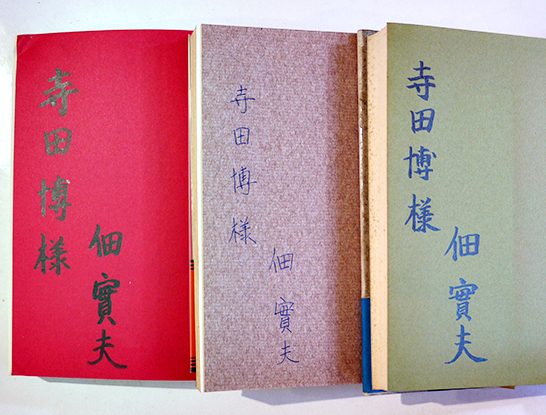 寺田博様
佃實夫
寺田博様
佃實夫
寺田博様
佃實夫